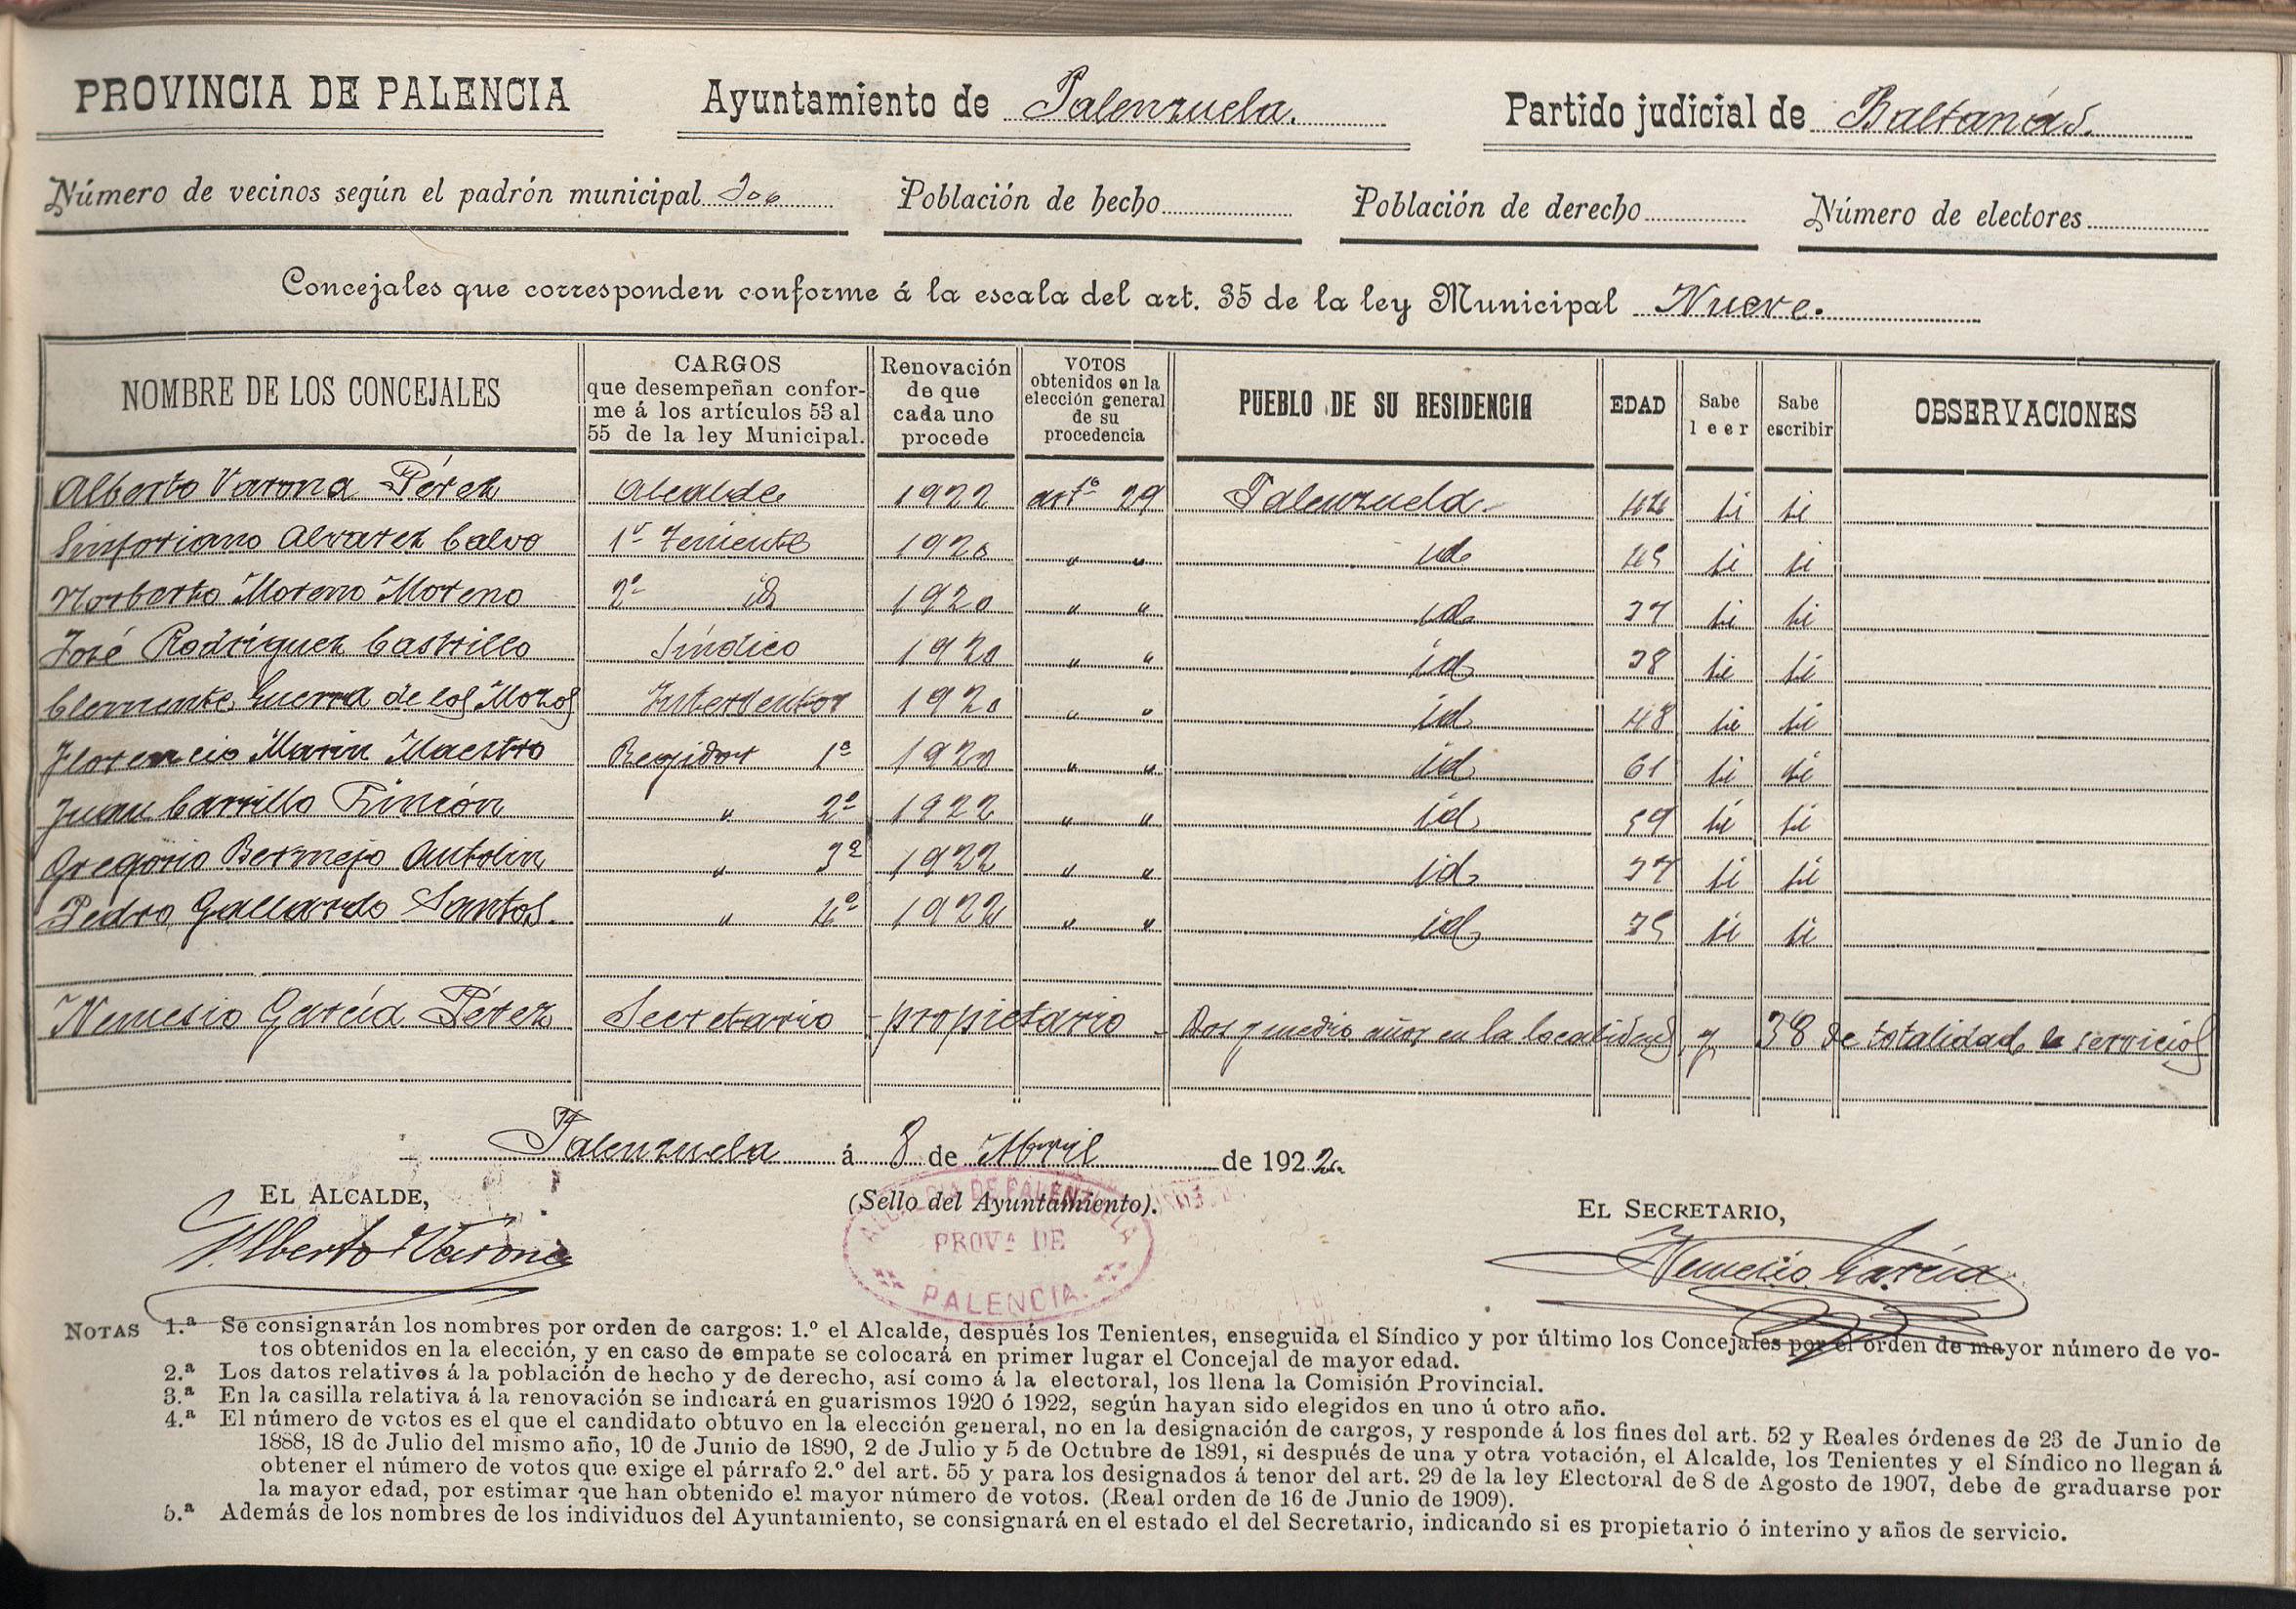 PROVINCIA DE PALENCIA Ayuntamiento de Palenzuela. Partido judicial de Baltanás.
Número de vecinos según el padrón municipal 300 Población de hecho Población de derecho Número de electores
Concejales que corresponden conforme á la escala del art. 35 de la ley Municipal Nueve.
NOMBRE DE LOS CONCEJALES
CARGOS
que desempeñan confor-
me á los artículos 53 al
55 de la ley Municipal.
Renovación
de que
cada uno
procede
VOTOS
obtenidos en la
elección general
de su
procedencia
PUEBLO DE SU RESIDENCIA
EDAD
Sabe
leer
Sabe
escribir
OBSERVACIONES
Alberto Varona Pérez Alcalde 1922 artº 29 Palenzuela 44 si si
Sinforiano Alvarez Calvo 1º Teniente 1920 " " id 45 si si
Norberto Moreno Moreno 2º id 1920 " " id 37 si si
José Rodríguez Castrillo Síndico 1920 " " id 38 si si
Clemente Guerra de los Mozos Interventor 1920 " " id 48 si si
Florencio Marin Maestro Regidor 1º 1920 " " id 61 si si
Juan Carrillo Rincón " 2º 1922 " " id 59 si si
Gregorio Bermejo Antolin " 3º 1922 " " id 37 si si
Pedro Gallardo Santos. " 4º 1922 " " id 35 si si
Nemesio García Pérez Secretario - propietario - Dos y medio años en la localidad y 38 de totalidad de servicios
Palenzuela á 8 de Abril de 1922.
EL ALCALDE, (Sello del Ayuntamiento). EL SECRETARIO,
ALCALDIA DE PALENZUELA
PROVª DE
PALENCIA
Alberto Varona Nemesio García
NOTAS 1.ª Se consignarán los nombres por orden de cargos: 1.º el Alcalde, después los Tenientes, enseguida el Síndico y por último los Concejales por el orden de mayor número de vo-
tos obtenidos en la elección, y en caso de empate se colocará en primer lugar el Concejal de mayor edad.
2.ª Los datos relativos á la población de hecho y de derecho, así como á la electoral, los llena la Comisión Provincial.
3.ª En la casilla relativa á la renovación se indicará en guarismos 1920 ó 1922, según hayan sido elegidos en uno ú otro año.
4.ª El número de votos es el que el candidato obtuvo en la elección general, no en la designación de cargos, y responde á los fines del art. 52 y Reales órdenes de 23 de Junio de
1888, 18 de Julio del mismo año, 10 de Junio de 1890, 2 de Julio y 5 de Octubre de 1891, si después de una y otra votación, el Alcalde, los Tenientes y el Síndico no llegan á
obtener el número de votos que exige el párrafo 2.º del art. 55 y para los designados á tenor del art. 29 de la ley Electoral de 8 de Agosto de 1907, debe de graduarse por
la mayor edad, por estimar que han obtenido el mayor número de votos. (Real orden de 16 de Junio de 1909).
5.ª Además de los nombres de los individuos del Ayuntamiento, se consignará en el estado el del Secretario, indicando si es propietario ó interino y años de servicio.